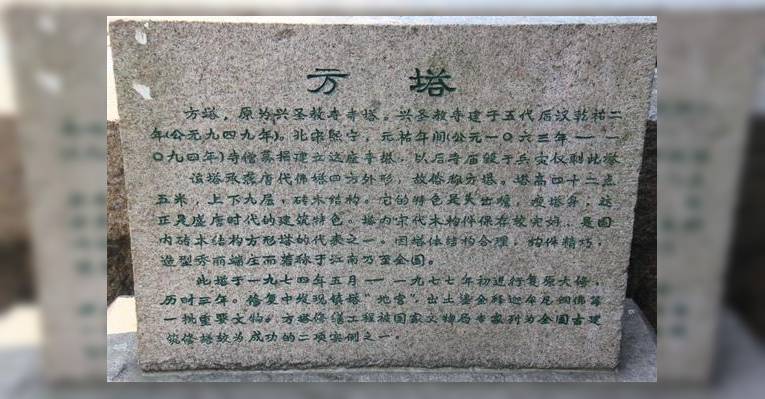 方塔
方塔，原为兴圣教寺寺塔。兴圣教寺建于五代后汉乾祐二
年(公元九四九年)。北宋熙宁，元祐年间(公元一〇六三年——一
〇九四年)寺僧募捐建立这座寺塔，以后寺庙毁于兵灾仅剩此塔
该塔承袭唐代佛塔四方外形，故俗称方塔。塔高四十二点
五米，上下九层，砖木结构。它的特色是大出檐，瘦塔身，这
正是盛唐时代的建筑特色。塔内宋代木构件保存较完好，是国
内砖木结构方形塔的代表之一。因塔体结构合理，构件精巧，
造型秀丽端庄而著称于江南乃至全国。
此塔于一九七四年五月——一九七七年初进行复原大修，
历时三年。修复中发现镇塔"地宫"，出土鎏金释迦牟尼铜佛等
一批重要文物。方塔修缮工程被国家文物局专家列为全国古建
筑修塔较为成功的二项实例之一。